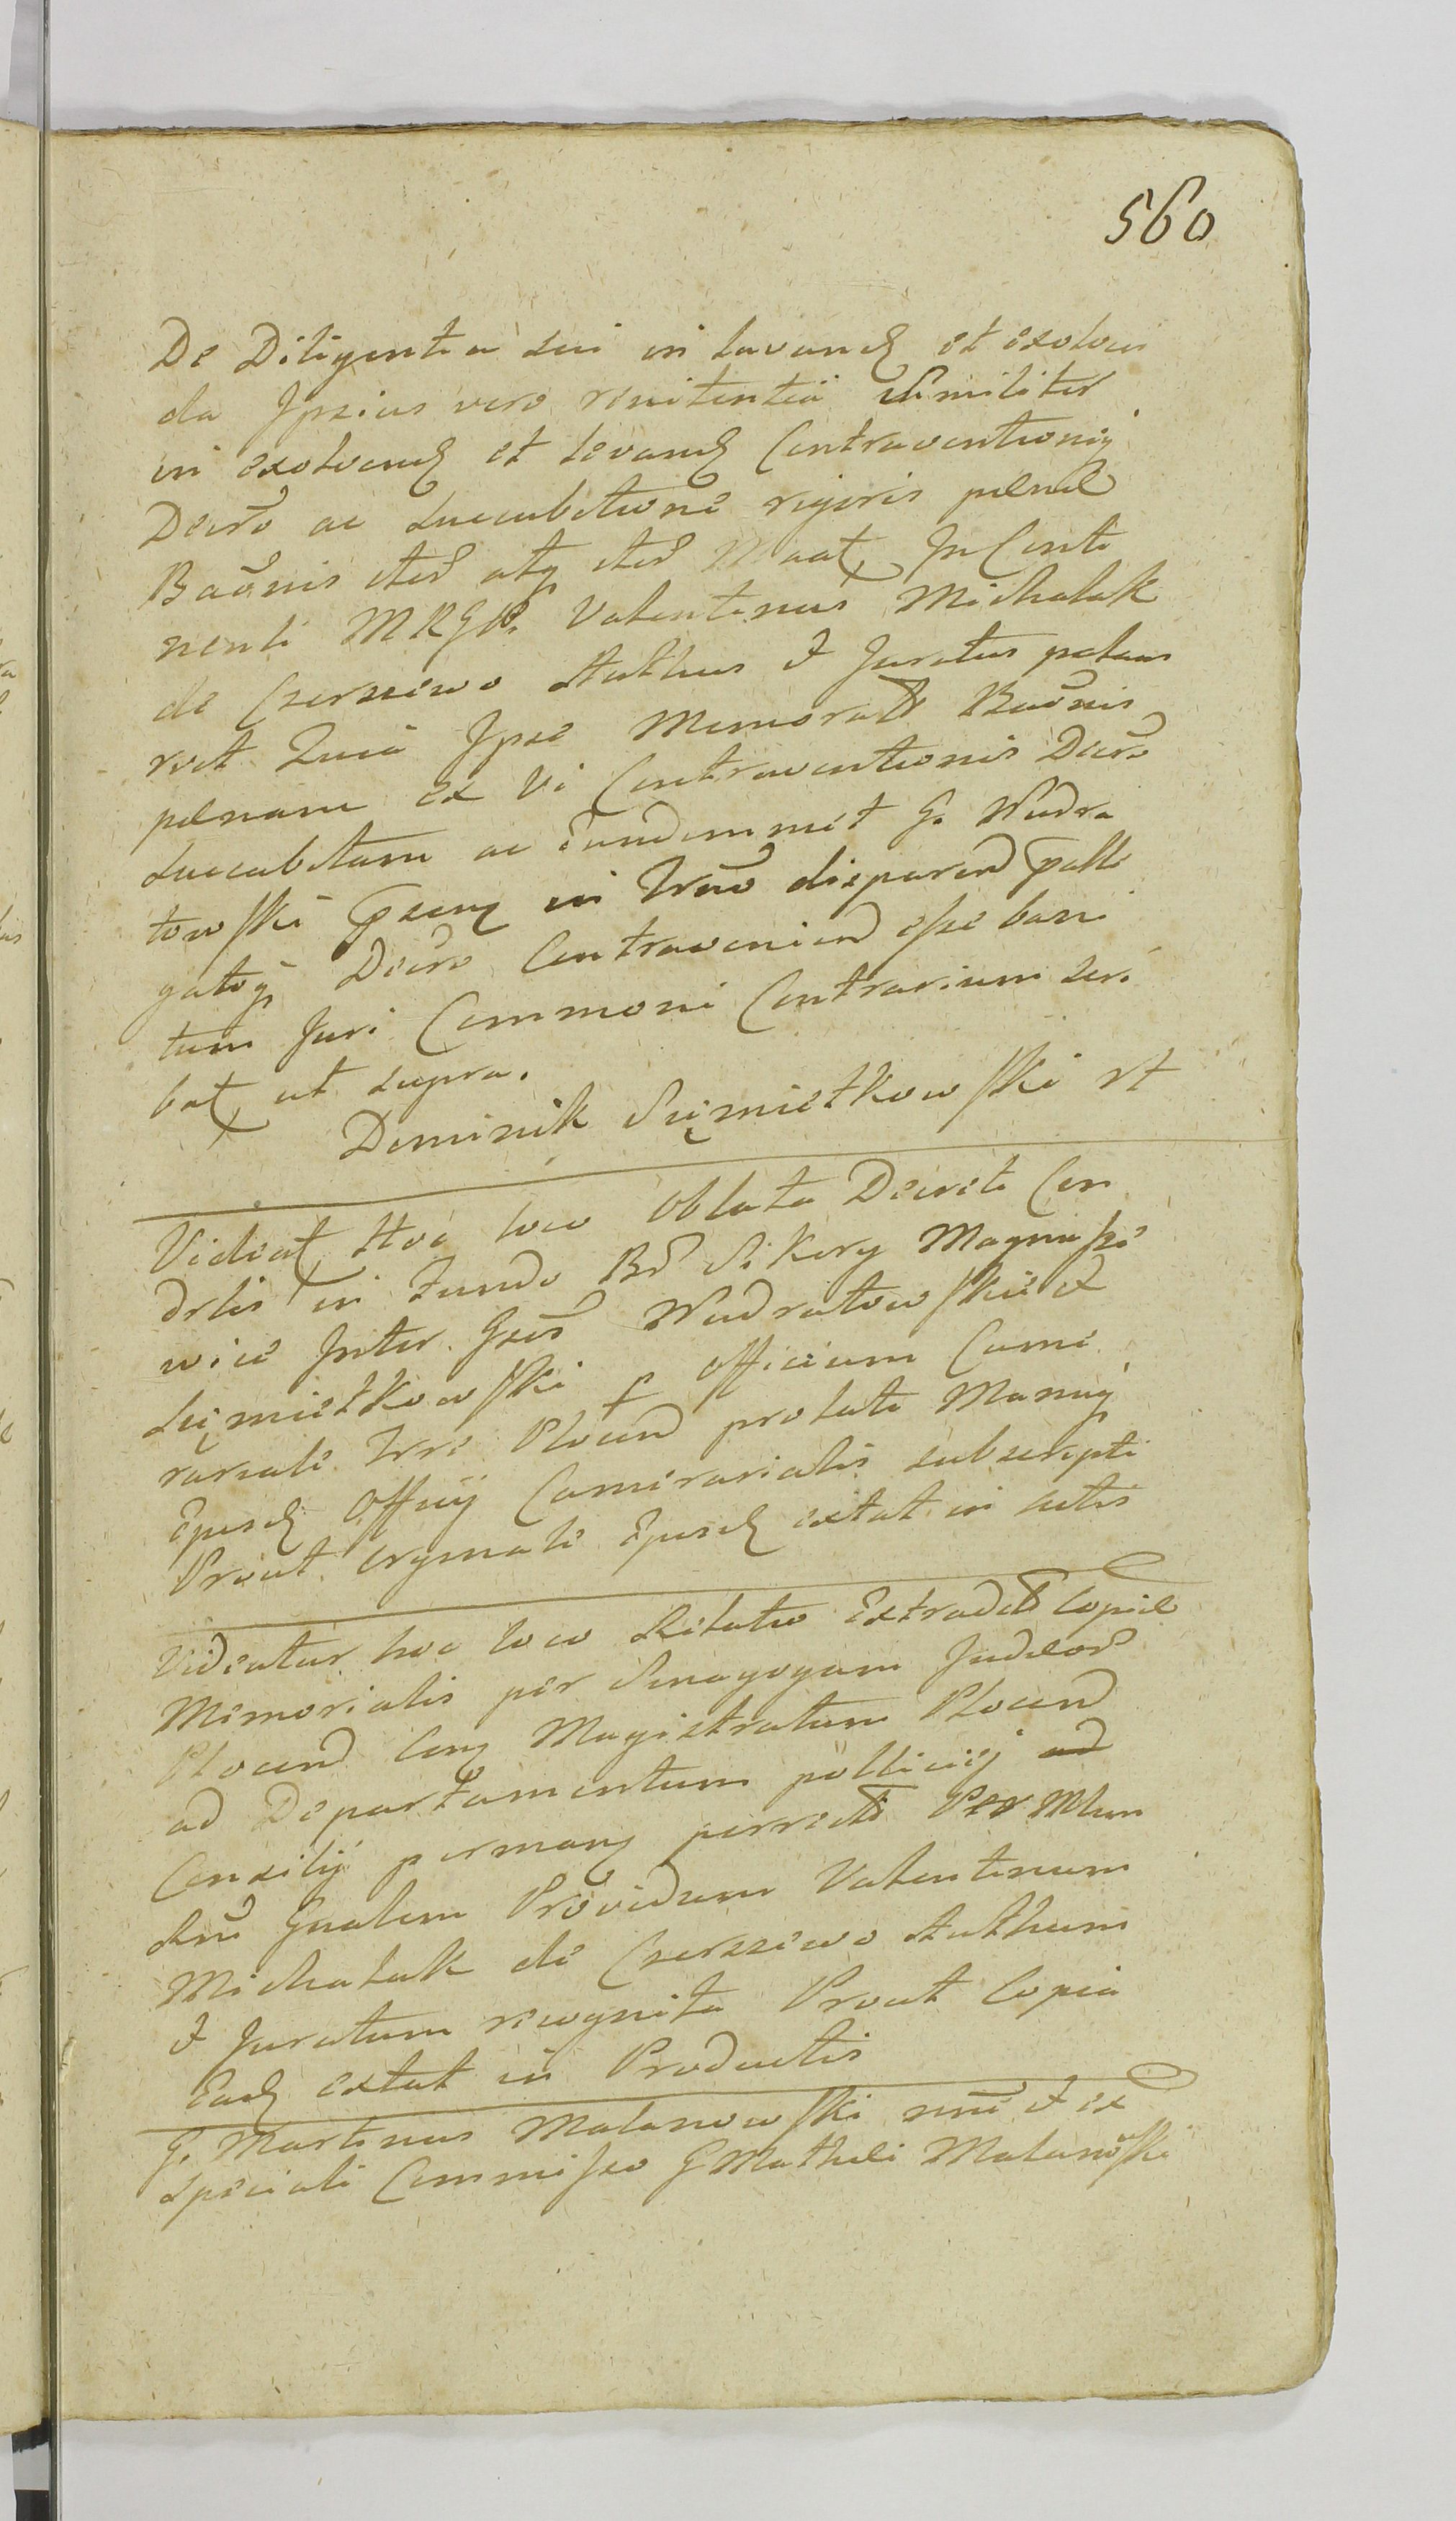 560
De Diligentia sui in lavand et exolven
da Ipsius vero renitentia similiter
in exolvend et levand Contraventionis
Decro ac succubitione rigoris penae
Baonis iter atq iter Maat In Conti
nenti MRGR Valentinus Michalak
de Czerszewo Authus & Juratus palam
rect Quia Ipse Memorats Baonis
penam ex Vi Contraventionis Decro
succubitam ac eundemmet G. Wudra
towski in disparen
gatoq Decro Contravenien esse banni
tum Juri Commoni Contrarium scri
bat ut supra.
Dominik Sujmietkowski rt
Videat Hoc loco Oblata Decreti Con
drlis in Fundo Br Sikory Magnussze
wice Inter Gsos Wudratowskie &
Sujmietkowski p officium Came
rariale Trre Plocen prolati Manuq
Ejusd Officij Camerarialis subscripti
Prout orginale Ejusd extat in Actis
Videatur hoc loco Relatio Extradits Copiae
Memorialis per Sinagogam Judeor
Plocen Conq Magistratum Plocen
ad Departamentum policiij ad
Consilij permanq perrects Per Mlum
Rnu Gnalem Providum Valentinum
Michalak de Czerszewo Authum
& Juratum recognita Prout Copia
Ead extat in Productis
G. Martinus Malanowski nni & ex
speciali Commisso G Mathei Malanowski